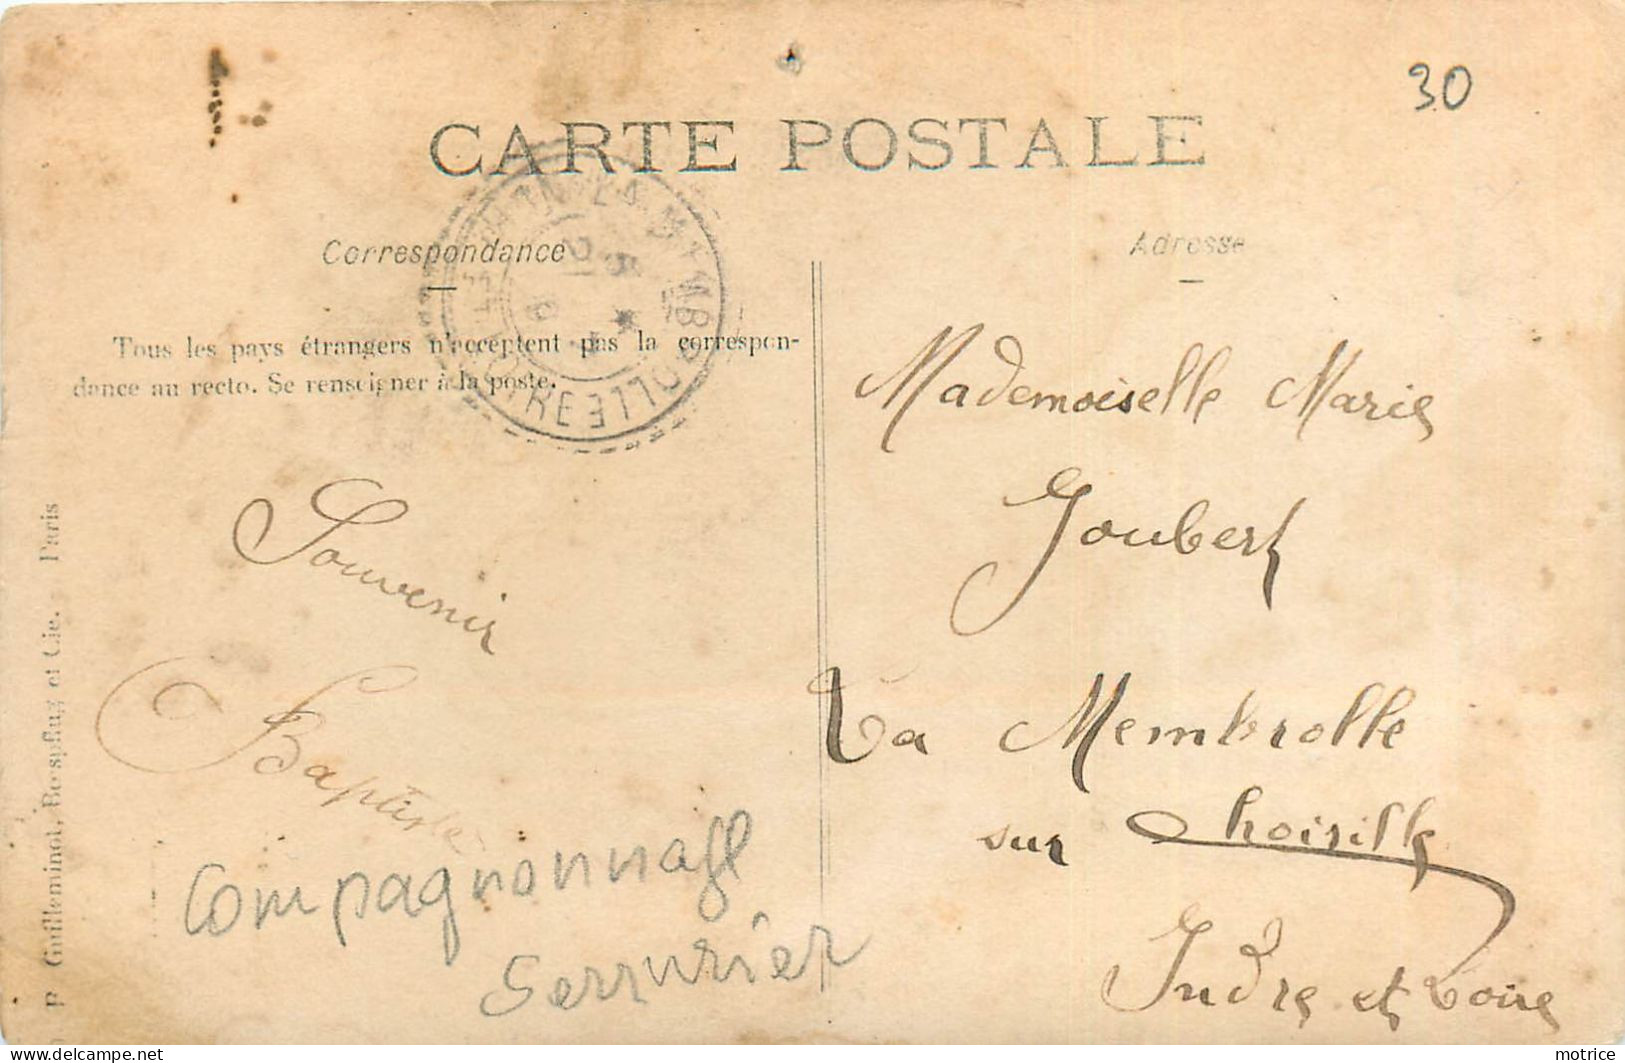 30
CARTE POSTALE
Correspondance
Adresse
Tous les pays étrangers n'acceptent pas la correspon-
dance au recto. Se renseigner à la poste.
Mademoiselle Marie
Goubert
La Membrolle
sur Choisille
Indre et Loire
Souvenir
Baptiste
Compagnonnage
Serrurier
Guilleminot, Bœspflug et Cie. Paris
delcampe.net
motrice